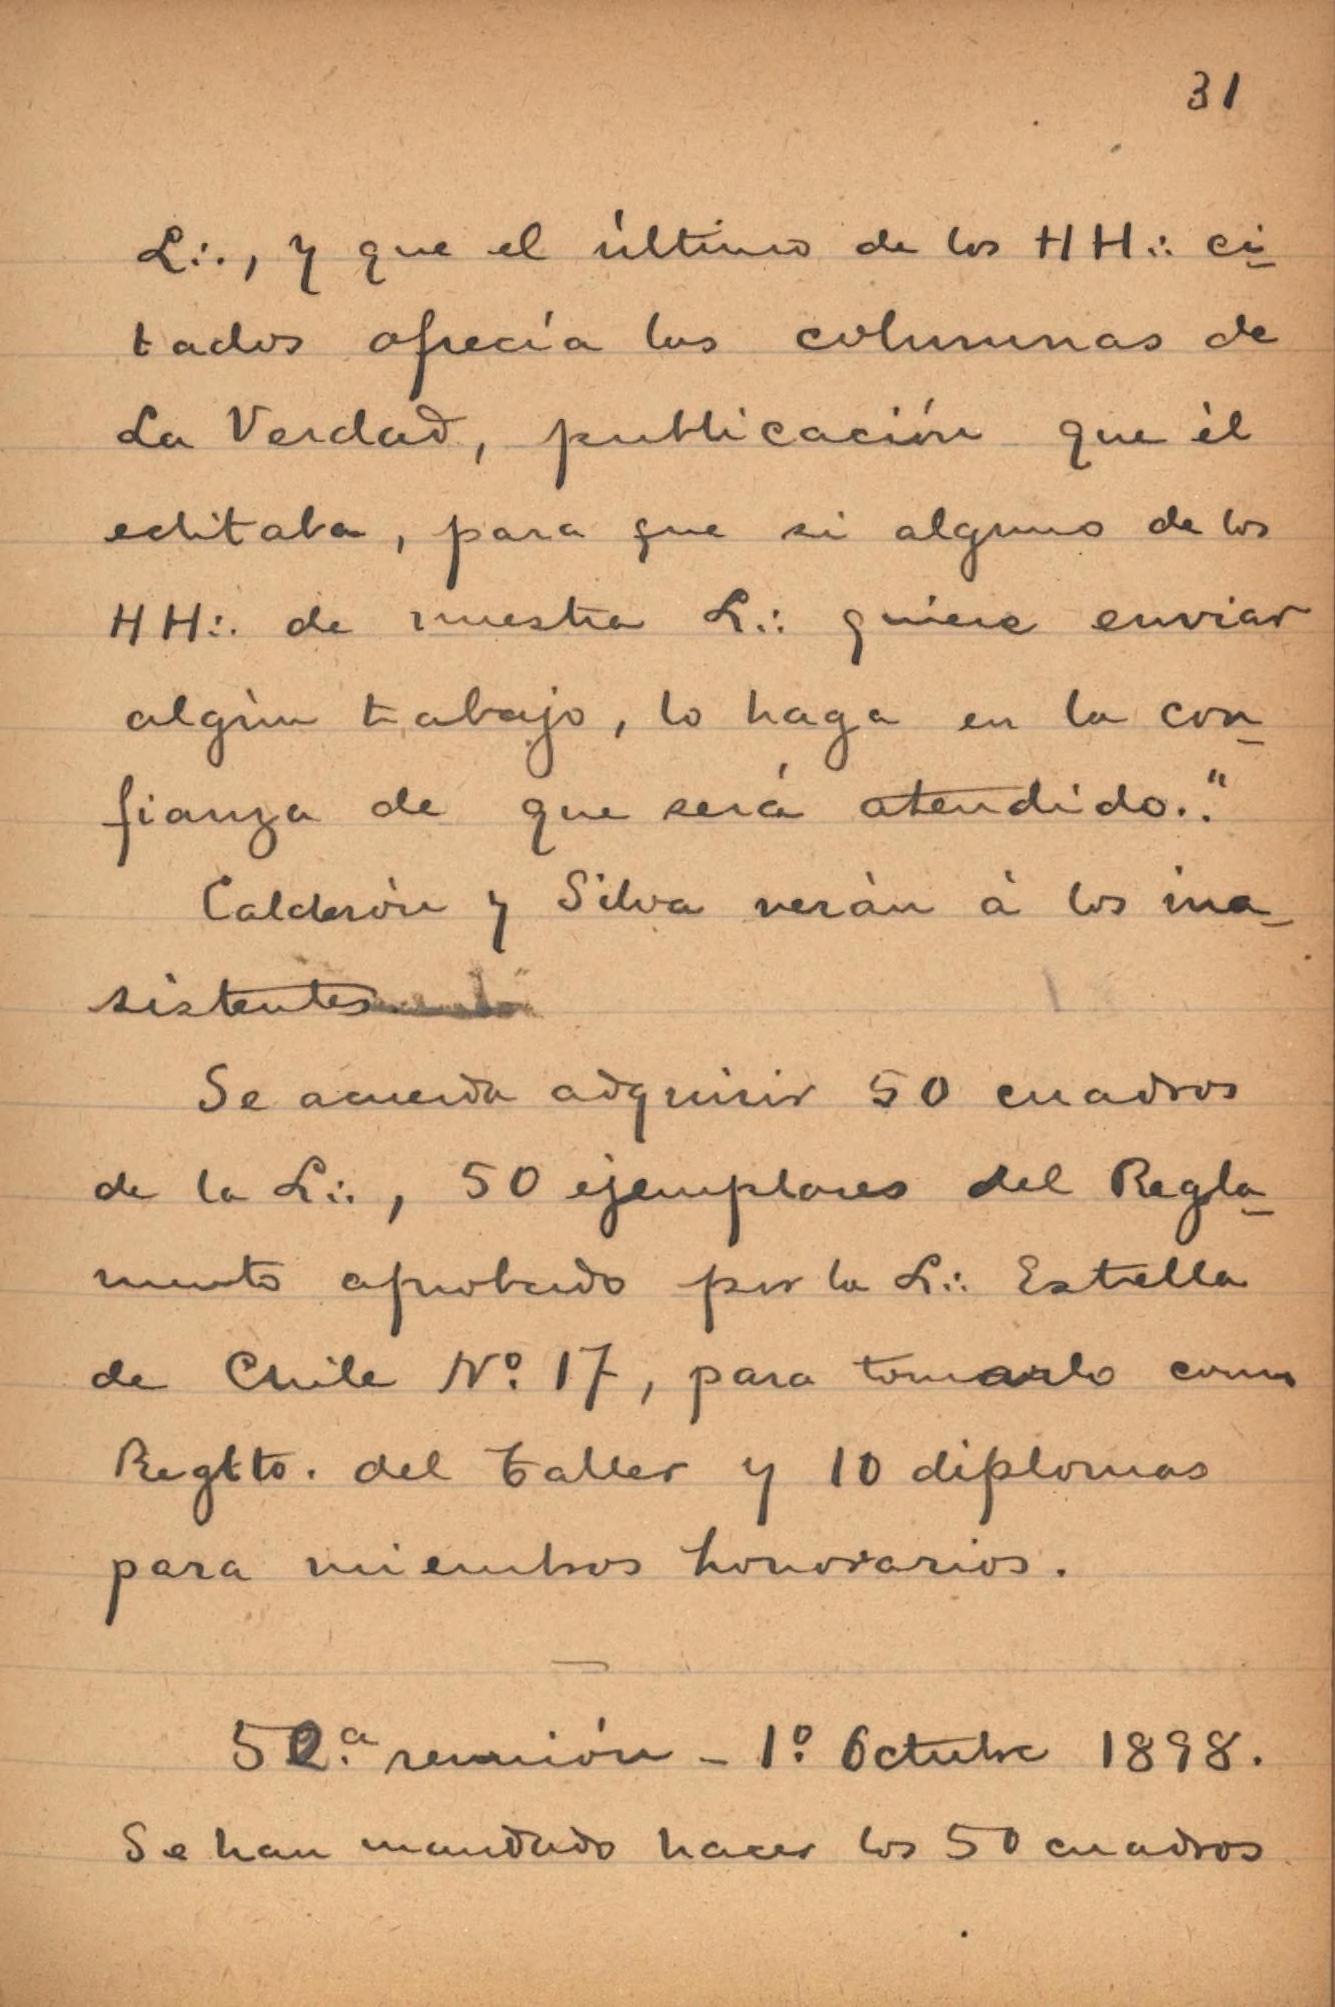 31
L∴, y que el último de los HH∴ ci-
tados ofrecía las columnas de
La Verdad, publicación que él
editaba, para que si alguno de los
HH∴ de nuestra L∴ quiere enviar
algún trabajo, lo haga en la con-
fianza de que será atendido."
Calderón y Silva verán á los ina-
sistentes
Se acuerda adquirir 50 cuadros
de la L∴, 50 ejemplares del Regla-
mento aprobado por la L∴ Estrella
de Chile Nº. 17, para tomarlo como
Reglto. del Taller y 10 diplomas
para miembros honorarios.
52.ª reunión - 1º. Octubre 1898.
Se han mandado hacer los 50 cuadros